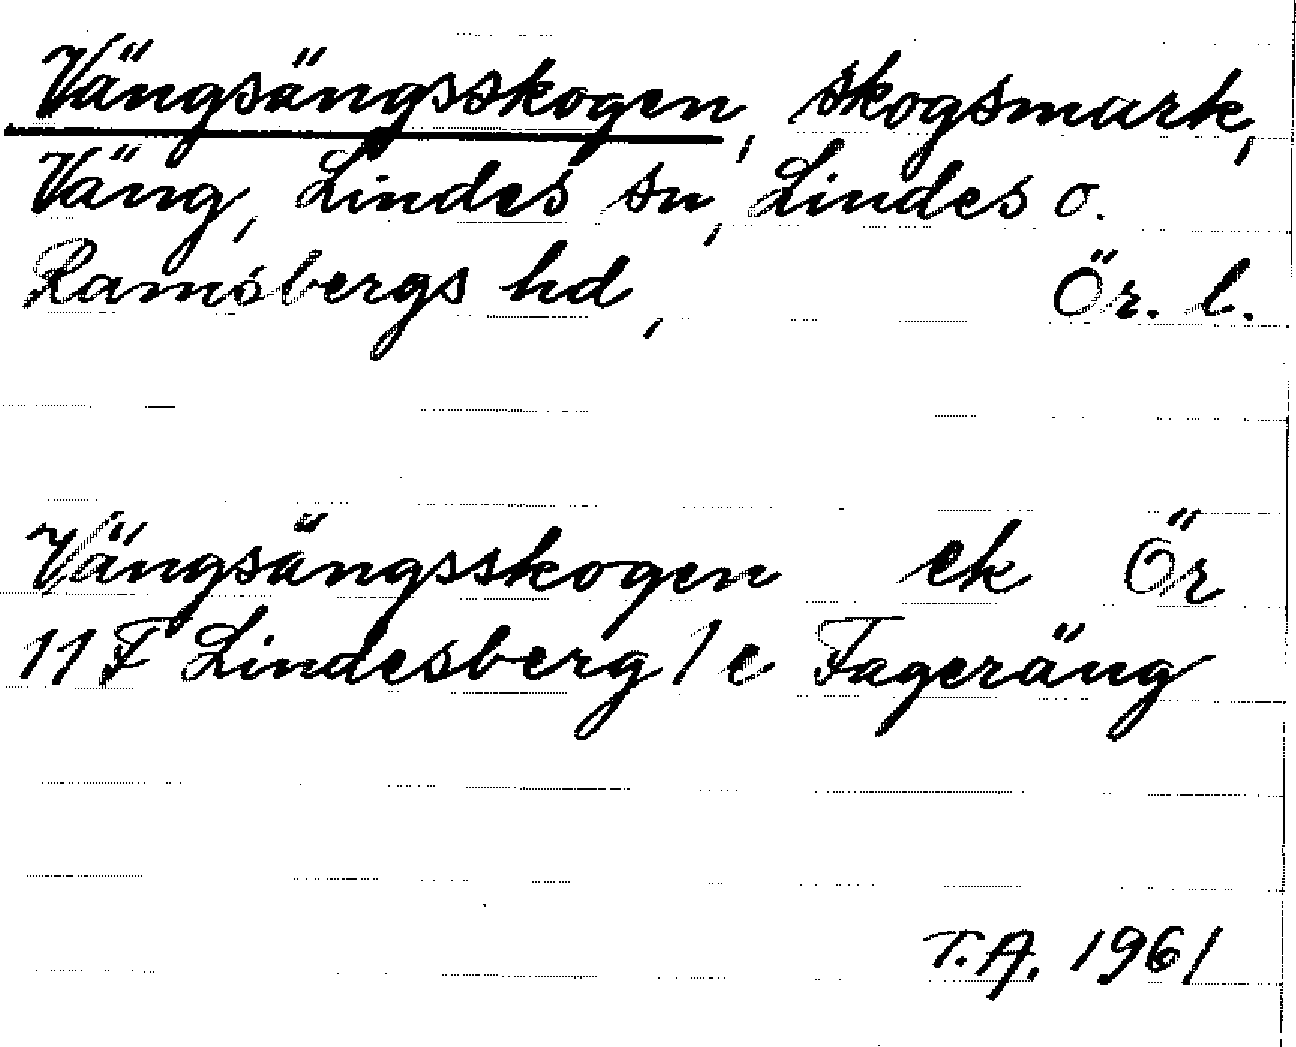 Vängsängsskogen, skogsmark,
Väng, Lindes sn, Lindes o.
Ramsbergs hd, Ör. l.
Vängsängsskogen ek Ör
11 F Lindesberg 1 e Fageräng
T.A. 1961